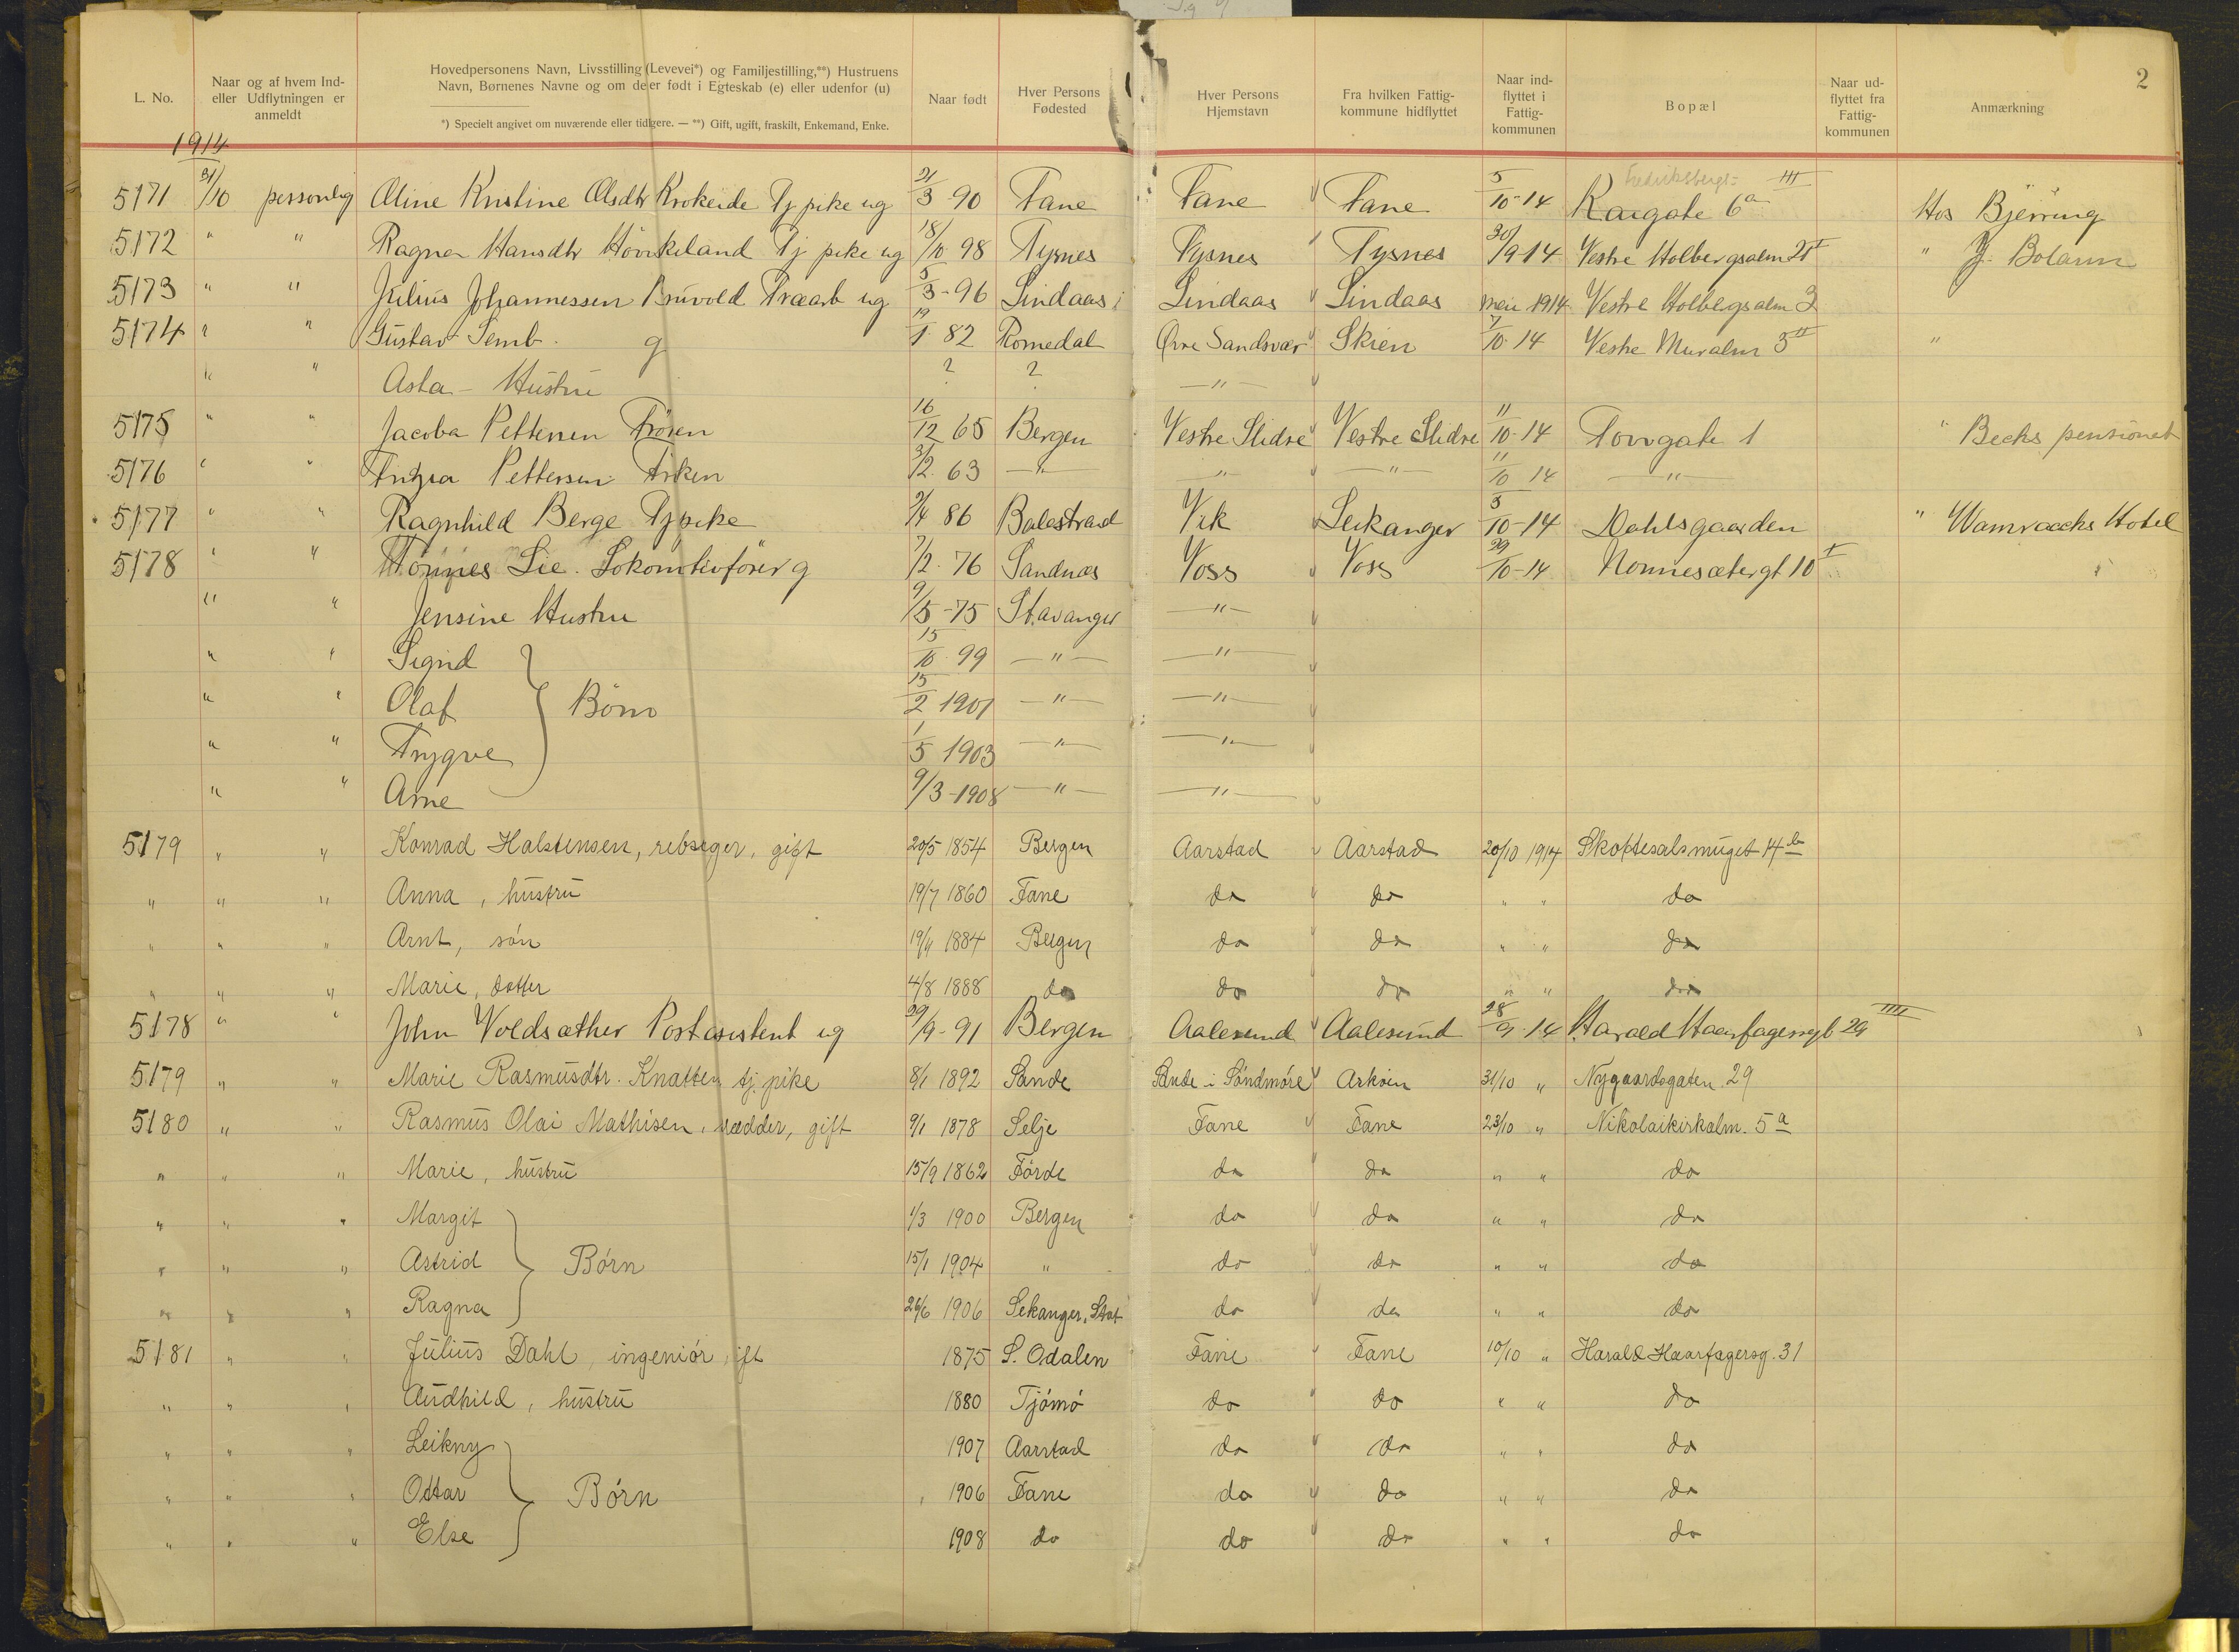 2
L. No. Naar og af hvem Ind- eller Udflytningen er anmeldt Hovedpersonens Navn, Livsstilling (Levevei*) og Familjestilling,**) Hustruens Navn, Børnenes Navne og om de er født i Egteskab (e) eller udenfor (u) Naar født Hver Persons Fødested Hver Persons Hjemstavn Fra hvilken Fattig-kommune hidflyttet Naar ind-flyttet i Fattig-kommunen Bopæl Naar ud-flyttet fra Fattig-kommunen Anmærkning
*) Specielt angivet om nuværende eller tidligere. — **) Gift, ugift, fraskilt, Enkemand, Enke.
1914
5171 31/10 personlig Oline Kristine Olsdtr Krokeide Tj pike ug 21/3 90 Fane Fane Fane 5/10-14 Fredriksbergs- Kaigate 6a III Hos Bjerring
5172 " " Ragna Hansdtr Hövikeland Tj pike ug 18/10 98 Tysnes Tysnes Tysnes 30/9-14 Vestre Holbergsalm 21 I " J. Bolann
5173 " " Julius Johannessen Bruvold Træarb ug 5/3-96 Lindaas Lindaas Lindaas mai 1914 Vestre Holbergsalm 3
5174 " " Gustav Semb g 19/1 82 Romedal Øvre Sandsvær Skien 7/10-14 Vestre Muralm 5 II "
" " Asta - Hustru ? ? — " —
5175 " " Jacoba Pettersen Frøken 16/12 65 Bergen Vestre Slidre Vestre Slidre 11/10-14 Torvgate 1 " Becks pensionat
5176 " " Pettersen Frøken 3/2 63 — " — — " — — " — 11/10 14 — " —
5177 " " Ragnhild Berge Tjpike 2/4 86 Balestrand Vik Leikanger 3/10-14 Dahlsgaarden " Wamraachs Hotel
5178 " " Tönnes Lie. Lokomotivförer g 7/2. 76 Sandnæs Voss Voss 29/10-14 Nonnesætergt 10 I
" " Jensine Hustru 9/5-75 Stavanger — " —
" " Sigrid 15/10 99 — " — — " —
" " Olaf } Börn 15/2 1901 — " — — " —
" " Trygve 1/5 1903 — " — — " —
" " Arne 9/3-1908 — " — — " —
5179 " " Konrad Halstensen, rebslager, gift 20/5 1854 Bergen Aarstad Aarstad 20/10 1914 Skottesalsmuget 14 b
" " " Anna, hustru 19/7 1860 Fane do do " " do
" " " Arnt, sön 19/4 1884 Bergen do do " " do
" " " Marie, datter 4/8 1888 do do do " " do
5178 " " John Voldsæther Postassistent ug 29/9-91 Bergen Aalesund Aalesund 28/9-14 Harald Haarfagersgt 29 IIII
5179 " " Marie Rasmusdtr. Knatten tj. pike 8/1 1892 Sande Sande i Söndmöre Askøen 31/10 " Nygaardsgaten 29
5180 " " Rasmus Olai Mathisen, skrædder, gift 9/1 1878 Selje Fane Fane 23/10 " Nikolaikirkalm. 5a
" " " Marie, hustru 15/9 1862 Förde do do " " do
" " " Margit 1/3 1900 Bergen do do " " do
" " " Astrid } Børn 15/1 1904 " do do " " do
" " " Ragna 26/6 1906 Lekanger, Stat do do " " do
5181 " " Julius Dahl, ingeniör, gift 1875 S. Odalen Fane Fane 10/10 " Harald Haarfagersg. 31
" " " Audhild, hustru 1880 Tjömö do do " " do
" " " Leikny 1907 Aarstad do do " " do
" " " Ottar } Børn 1906 Fane do do " " do
" " " Else 1908 do do do " " do